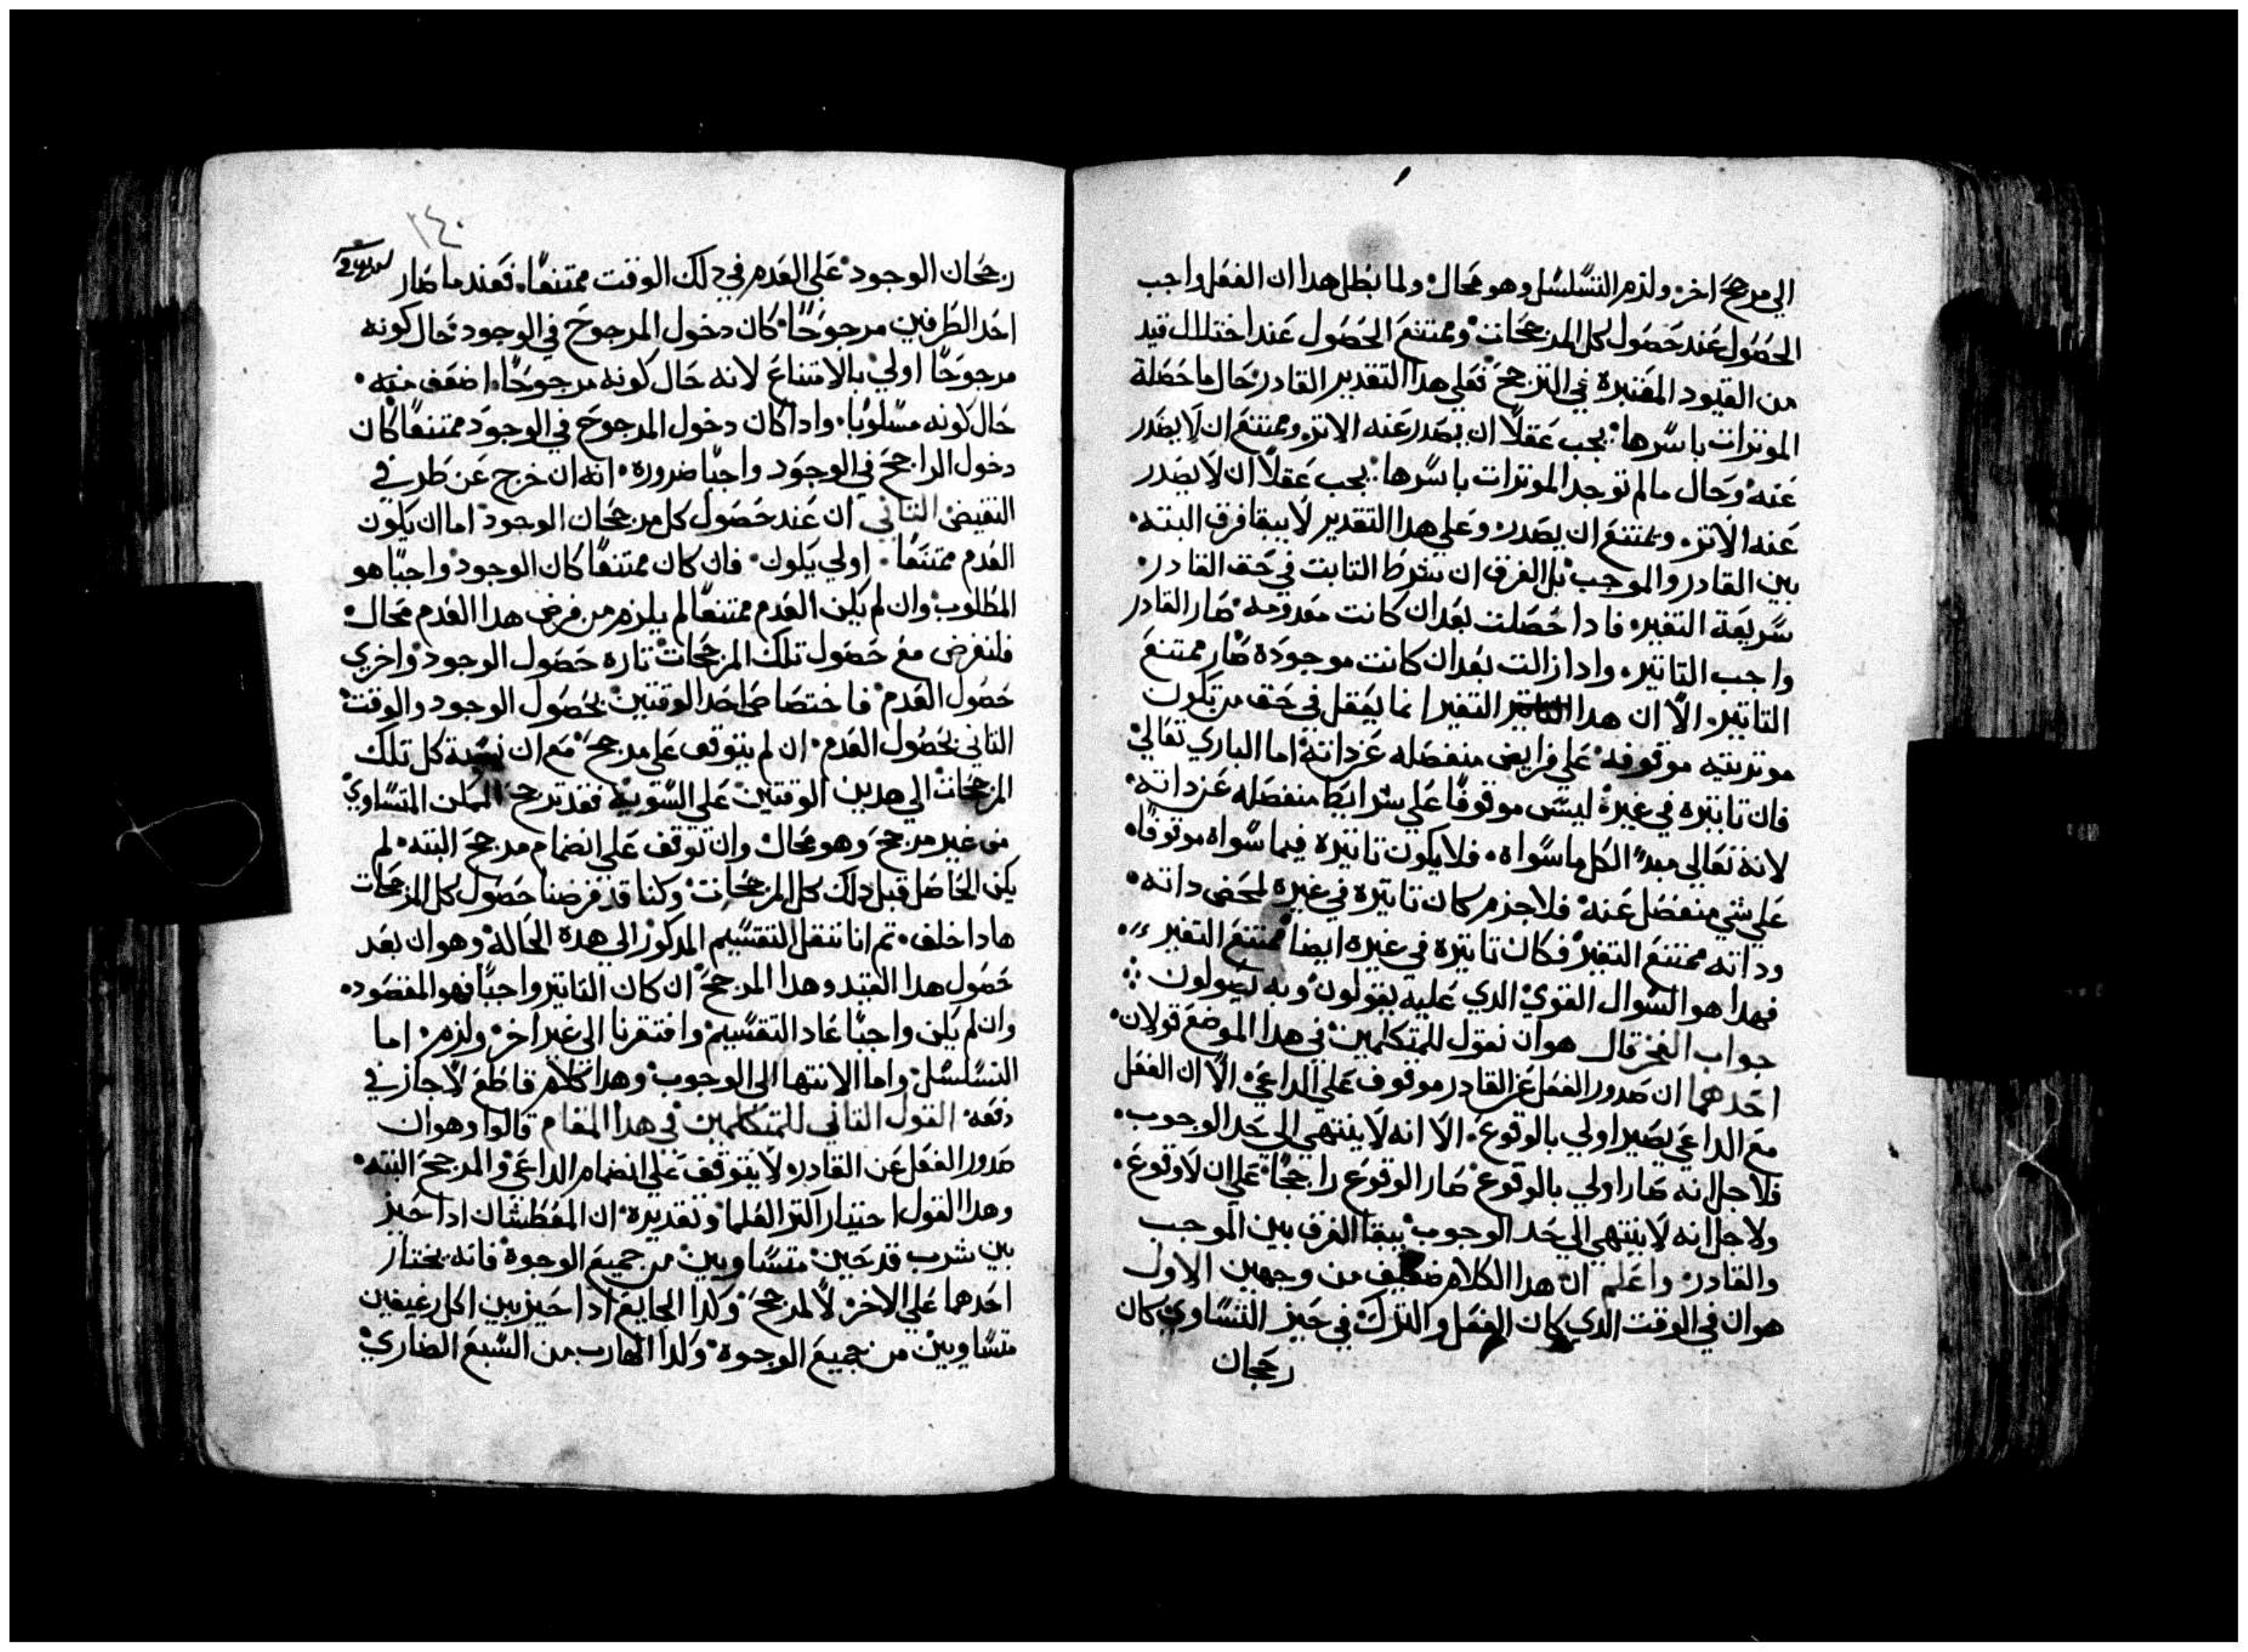 الي مرجح اخر ولزم التسلسل وهو محال ولما بطل هدا ان الفعل واجب
الحصول عند حصول كل المرجحات وممتنع الحصول عند اختلال قيد
من القيود المعتبرة في الترجح فعلي هدا التقدير القادر حال ما حصلة
الموثرات باسرها يجب عقلًا ان يصدر عنه الاثر وممتنع ان لا يصدر
عنه وحال ما لم توجد الموثرات باسرها يجب عقلًا ان لا يصدر
عنه الاثر ويمتنع ان يصدر وعلي هدا التقدير لا يبقا فرق البته
بين القادر والموجب بل الفرق ان شرط التابت في حق القادر
سريعة التغير فادا حصلت بعد ان كانت معدومه صار القادر
واجب التاتير وادا زالت بعد ان كانت موجودة صار ممتنع
التاتير الا ان هدا التغير انما يعقل في حق من تكون
موتريته موقوفه علي فرايض منفصله عن داته اما الباري تعالي
فان تاتيره في غيره ليس موقوفًا علي شرايط منفصله عن داته
لانه تعالي مبدًا لكل ما سواه فلا يكون تاتيره فيما سواه موقوفًا
علي شي منفصل عنه فلا جرم كان تاتيره في غيره لمحض داته
وداته ممتنع التغير فكان تاتيره في غيره ايضا ممتنع التغير
فهدا هو السوال القوي الدي علية يقولون وبه يصولون
جواب الفخر قال هو ان نقول للمتكلمين في هدا الموضع قولان
احدهما ان صدور الفعل عن القادر موقوف علي الداعي الا ان الفعل
مع الداعي يصير اولي بالوقوع الا انه لا ينتهي الي حد الوجوب
فلاجل انه صار اولي بالوقوع صار الوقوع راجحًا علي ان لا وقوع
ولاجل انه لا ينتهي الي حد الوجوب يبقا الفرق بين الموجب
والقادر واعلم ان هدا الكلام ضعيف من وجهين الاول
هو ان في الوقت الدي كان الفعل والترك في حيز التساوي كان
رجحان
٢٤٠
رجحان الوجود علي العدم في دلك الوقت ممتنعًا فعند ما صار
احد الطرفين مرجوحًا كان دخول المرجوح في الوجود حال كونه
مرجوحًا اولي بالامتناع لانه حال كونه مرجوحًا اضعف منه
حال كونه مسلوبًا وادا كان دخول المرجوح في الوجود ممتنعًا كان
دخول الراجح في الوجود واجبًا ضروره انه ان خرج عن طرفي
النقيض التاني ان عند حصول كل مرجحان الوجود اما ان يكون
العدم ممتنعًا اولي يكون فان كان ممتنعًا كان الوجود واجبًا هو
المطلوب وان لم يكن العدم ممتنعًا لم يلزم من فرض هدا العدم محال
فلنفرض مع حصول تلك المرجحات تاره حصول الوجود واخري
حصول العدم فاختصاص احد الوقتين بحصول الوجود والوقت
التاني بحصول العدم ان لم يتوقف علي مرجح مع ان نسبة كل تلك
المرجحات الي هدين الوقتين علي السوية فقد ترجح الممكن المتساوي
من غير مرجح وهو محال وان توقف علي انضمام مرجح البته لم
يكن الحاصل قبل دلك كل المرجحات وكنا قد فرضنا حصول كل المرجحات
هادا خلف تم انا ننقل التقسيم المدكور الي هدة الحالة وهو ان بعد
حصول هدا القيد وهدا المرجح ان كان التاتير واجبًا فهو المقصود
وان لم يكن واجبًا عاد التقسيم وافتقرنا الي غير اخر ولزم اما
التسلسل واما الانتها الي الوجوب وهدا كلام قاطع لاجاز في
دفعه القول التاني للمتكلمين في هدا المقام قالوا وهو ان
صدور الفعل عن القادر لا يتوقف علي انضمام الداعي والمرجح البته
وهدا القول اختيار اكتر العلما وتقديره ان المعطشان ادا خير
بين شرب قدحين متساويين من جميع الوجوة فانه يختار
احدهما علي الاخر لا لمرجح وكدا الجايع ادا خير بين اكل رغيفين
متساويين من جميع الوجوة وكدا الهارب من السبع الضاري